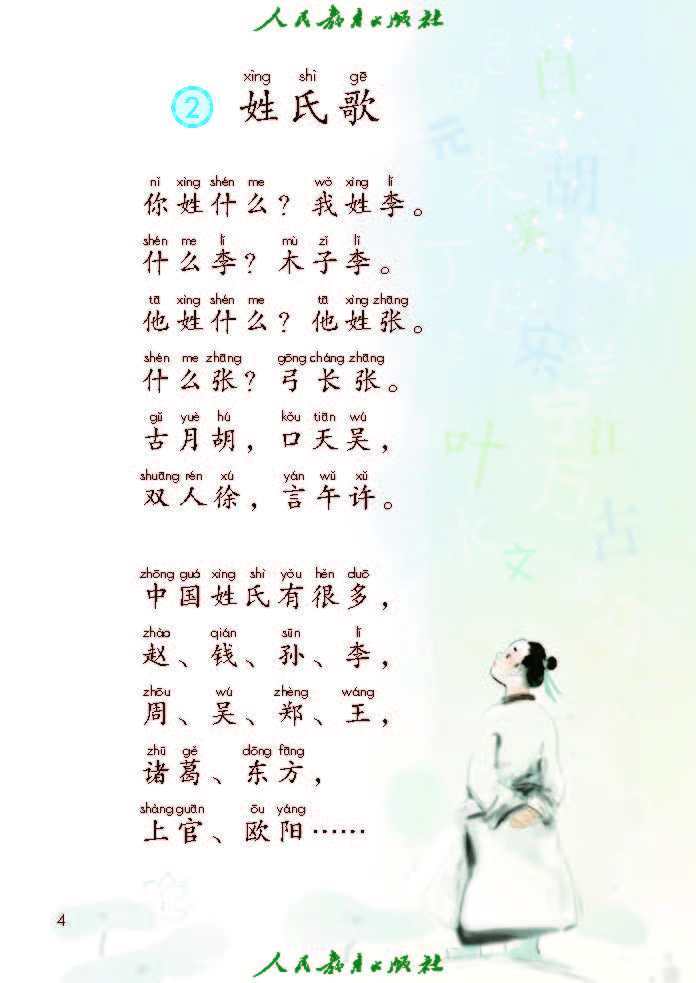 人民教育出版社
xìng shì gē
2 姓氏歌
nǐ xìng shén me wǒ xìng lǐ
你姓什么？我姓李。
shén me lǐ mù zǐ lǐ
什么李？木子李。
tā xìng shén me tā xìng zhāng
他姓什么？他姓张。
shén me zhāng gōng cháng zhāng
什么张？弓长张。
gǔ yuè hú kǒu tiān wú
古月胡，口天吴，
shuāng rén xú yán wǔ xǔ
双人徐，言午许。
zhōng guó xìng shì yǒu hěn duō
中国姓氏有很多，
zhào qián sūn lǐ
赵、钱、孙、李，
zhōu wú zhèng wáng
周、吴、郑、王，
zhū gě dōng fāng
诸葛、东方，
shàng guān ōu yáng
上官、欧阳……
白
元
朱
胡
吴
丁
宋
叶
江
古
文
4
人民教育出版社